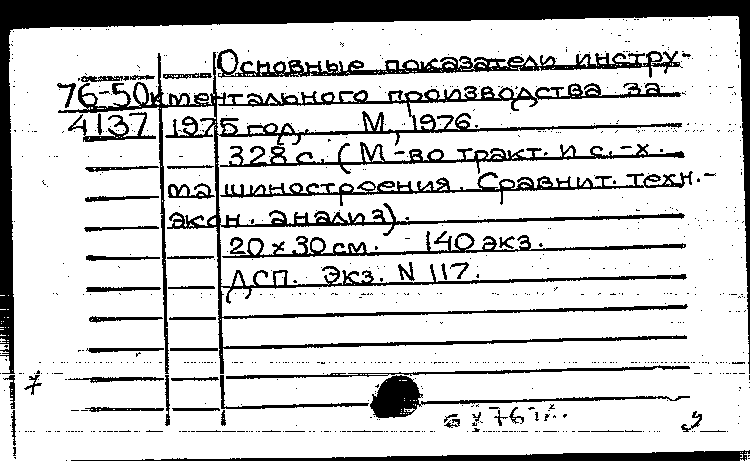 Основные показатели инстру-
76-50к ментального производства за
4137 1975 год. М., 1976.
328 с. (М-во тракт. и с.-х.
машиностроения. Сравнит. техн.-
экон. анализ).
20 x 30 см. 140 экз.
ДСП. Экз. N 117.